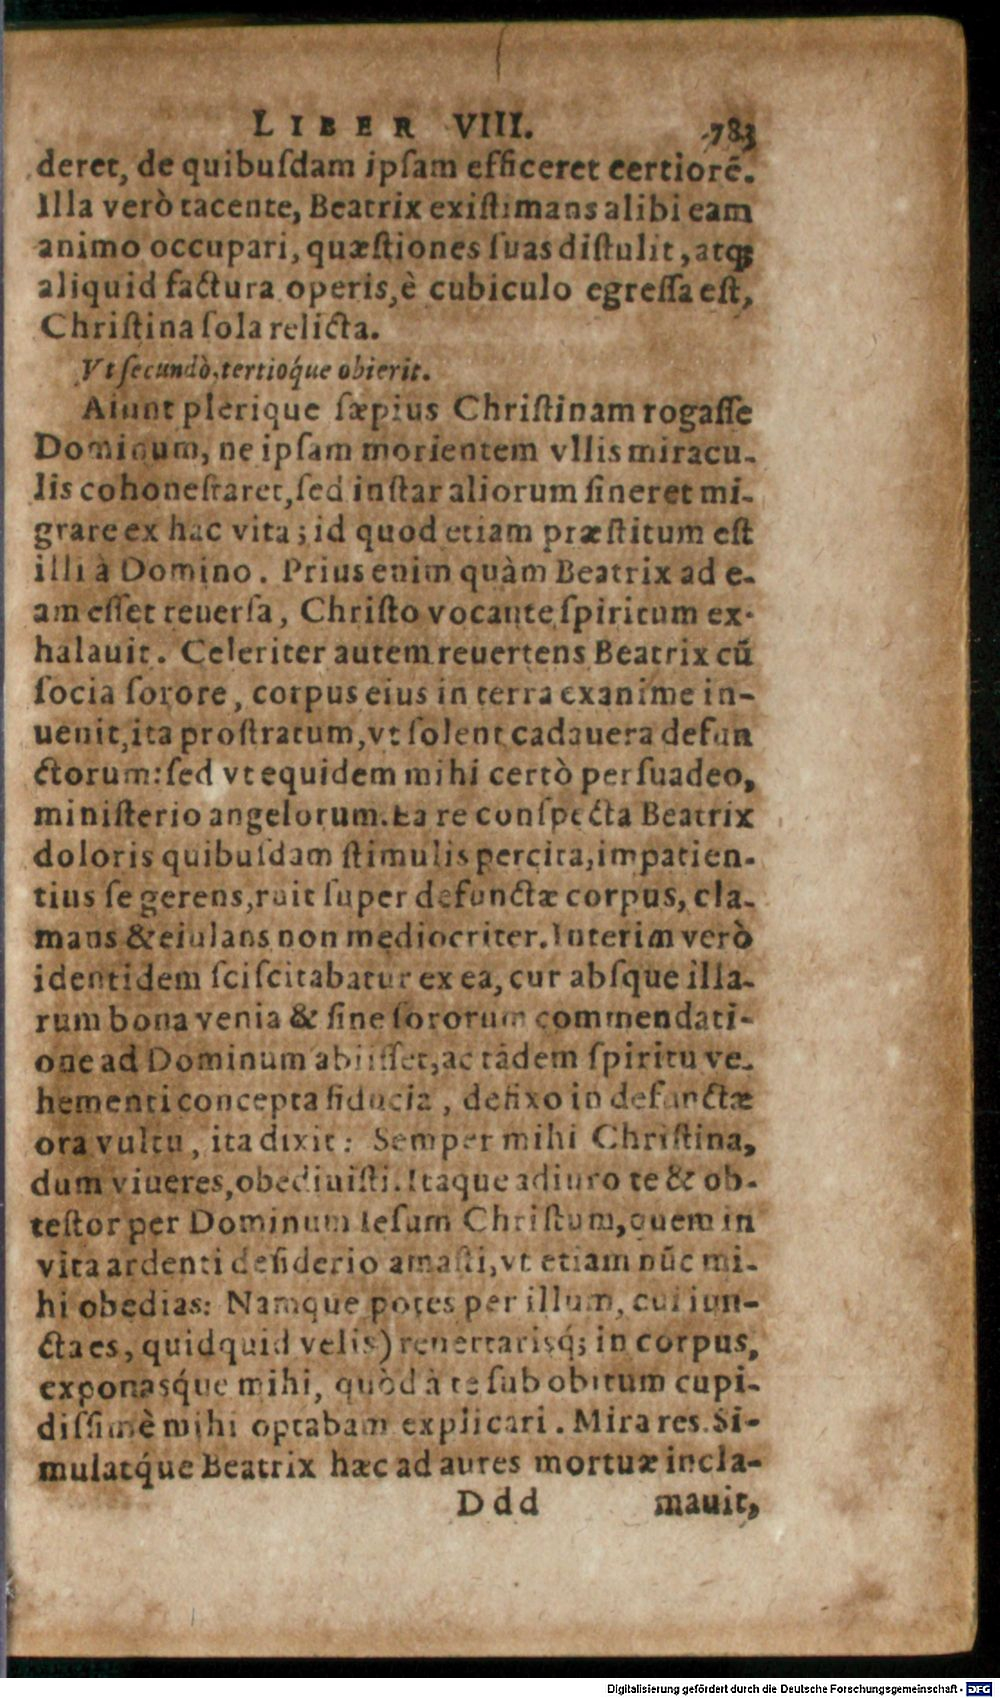 LIBER VIII. 783
deret, de quibuſdam ipſam efficeret certiorē.
Illa verò tacente, Beatrix exiſtimans alibi eam
animo occupari, quæſtiones ſuas diſtulit, atq;
aliquid factura operis, è cubiculo egreſſa eſt,
Chriſtina ſola relicta.
Vt ſecundò, tertioq́ue obierit.
Aiunt plerique ſæpius Chriſtinam rogaſſe
Dominum, ne ipſam morientem vllis miracu-
lis cohoneſtaret, ſed inſtar aliorum ſineret mi-
grare ex hac vita; id quod etiam præſtitum eſt
illi à Domino. Prius enim quàm Beatrix ad e-
am eſſet reuerſa, Chriſto vocante ſpiritum ex-
halauit. Celeriter autem reuertens Beatrix cū
ſocia ſorore, corpus eius in terra exanime in-
uenit, ita proſtratum, vt ſolent cadauera defun
ctorum: ſed vt equidem mihi certò perſuadeo,
miniſterio angelorum. Ea re conſpecta Beatrix
doloris quibuſdam ſtimulis percita, impatien-
tius ſe gerens, ruit ſuper defunctæ corpus, cla-
mans & eiulans non mediocriter. Interim verò
identidem ſciſcitabatur ex ea, cur abſque illa-
rum bona venia & ſine ſororum commendati-
one ad Dominum abiiſſet, ac tādem ſpiritu ve-
hementi concepta fiducia, defixo in defunctæ
ora vultu, ita dixit: Semper mihi Chriſtina,
dum viueres, obediuiſti. Itaque adiuro te & ob-
teſtor per Dominum Ieſum Chriſtum, quem in
vita ardenti deſiderio amaſti, vt etiam nūc mi-
hi obedias: Namque potes per illum, cui iun-
cta es, quidquid velis) reuertarisq́; in corpus,
exponasq́ue mihi, quòd à te ſub obitum cupi-
diſſimè mihi optabam explicari. Mira res. Si-
mulatq́ue Beatrix hæc ad aures mortuæ incla-
Ddd mauit,
Digitalisierung gefördert durch die Deutsche Forschungsgemeinschaft - DFG